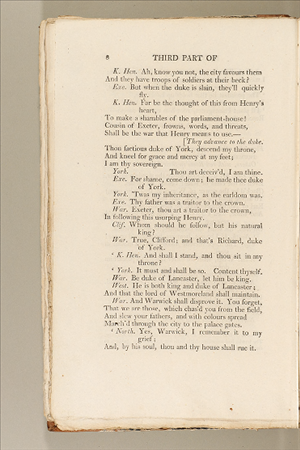 8 THIRD PART OF
K. Hen. Ah, know you not, the city favours them
And they have troops of soldiers at their beck?
Exe. But when the duke is slain, they'll quickly
fly.
K. Hen. Far be the thought of this from Henry's
heart,
To make a shambles of the parliament-house!
Cousin of Exeter, frowns, words, and threats,
Shall be the war that Henry means to use.—
[They advance to the duke.
Thou factious duke of York, descend my throne,
And kneel for grace and mercy at my feet;
I am thy sovereign.
York. Thou art deceiv'd, I am thine.
Exe. For shame, come down; he made thee duke
of York.
York. 'Twas my inheritance, as the earldom was.
Exe. Thy father was a traitor to the crown.
War. Exeter, thou art a traitor to the crown,
In following this usurping Henry.
Clif. Whom should he follow, but his natural
king?
War. True, Clifford; and that's Richard, duke
of York.
' K. Hen. And shall I stand, and thou sit in my
throne?
' York. It must and shall be so. Content thyself.
War. Be duke of Lancaster, let him be king.
West. He is both king and duke of Lancaster;
And that the lord of Westmoreland shall maintain.
War. And Warwick shall disprove it. You forget,
That we are those, which chas'd you from the field,
And slew your fathers, and with colours spread
March'd through the city to the palace gates.
' North. Yes, Warwick, I remember it to my
grief;
And, by his soul, thou and thy house shall rue it.